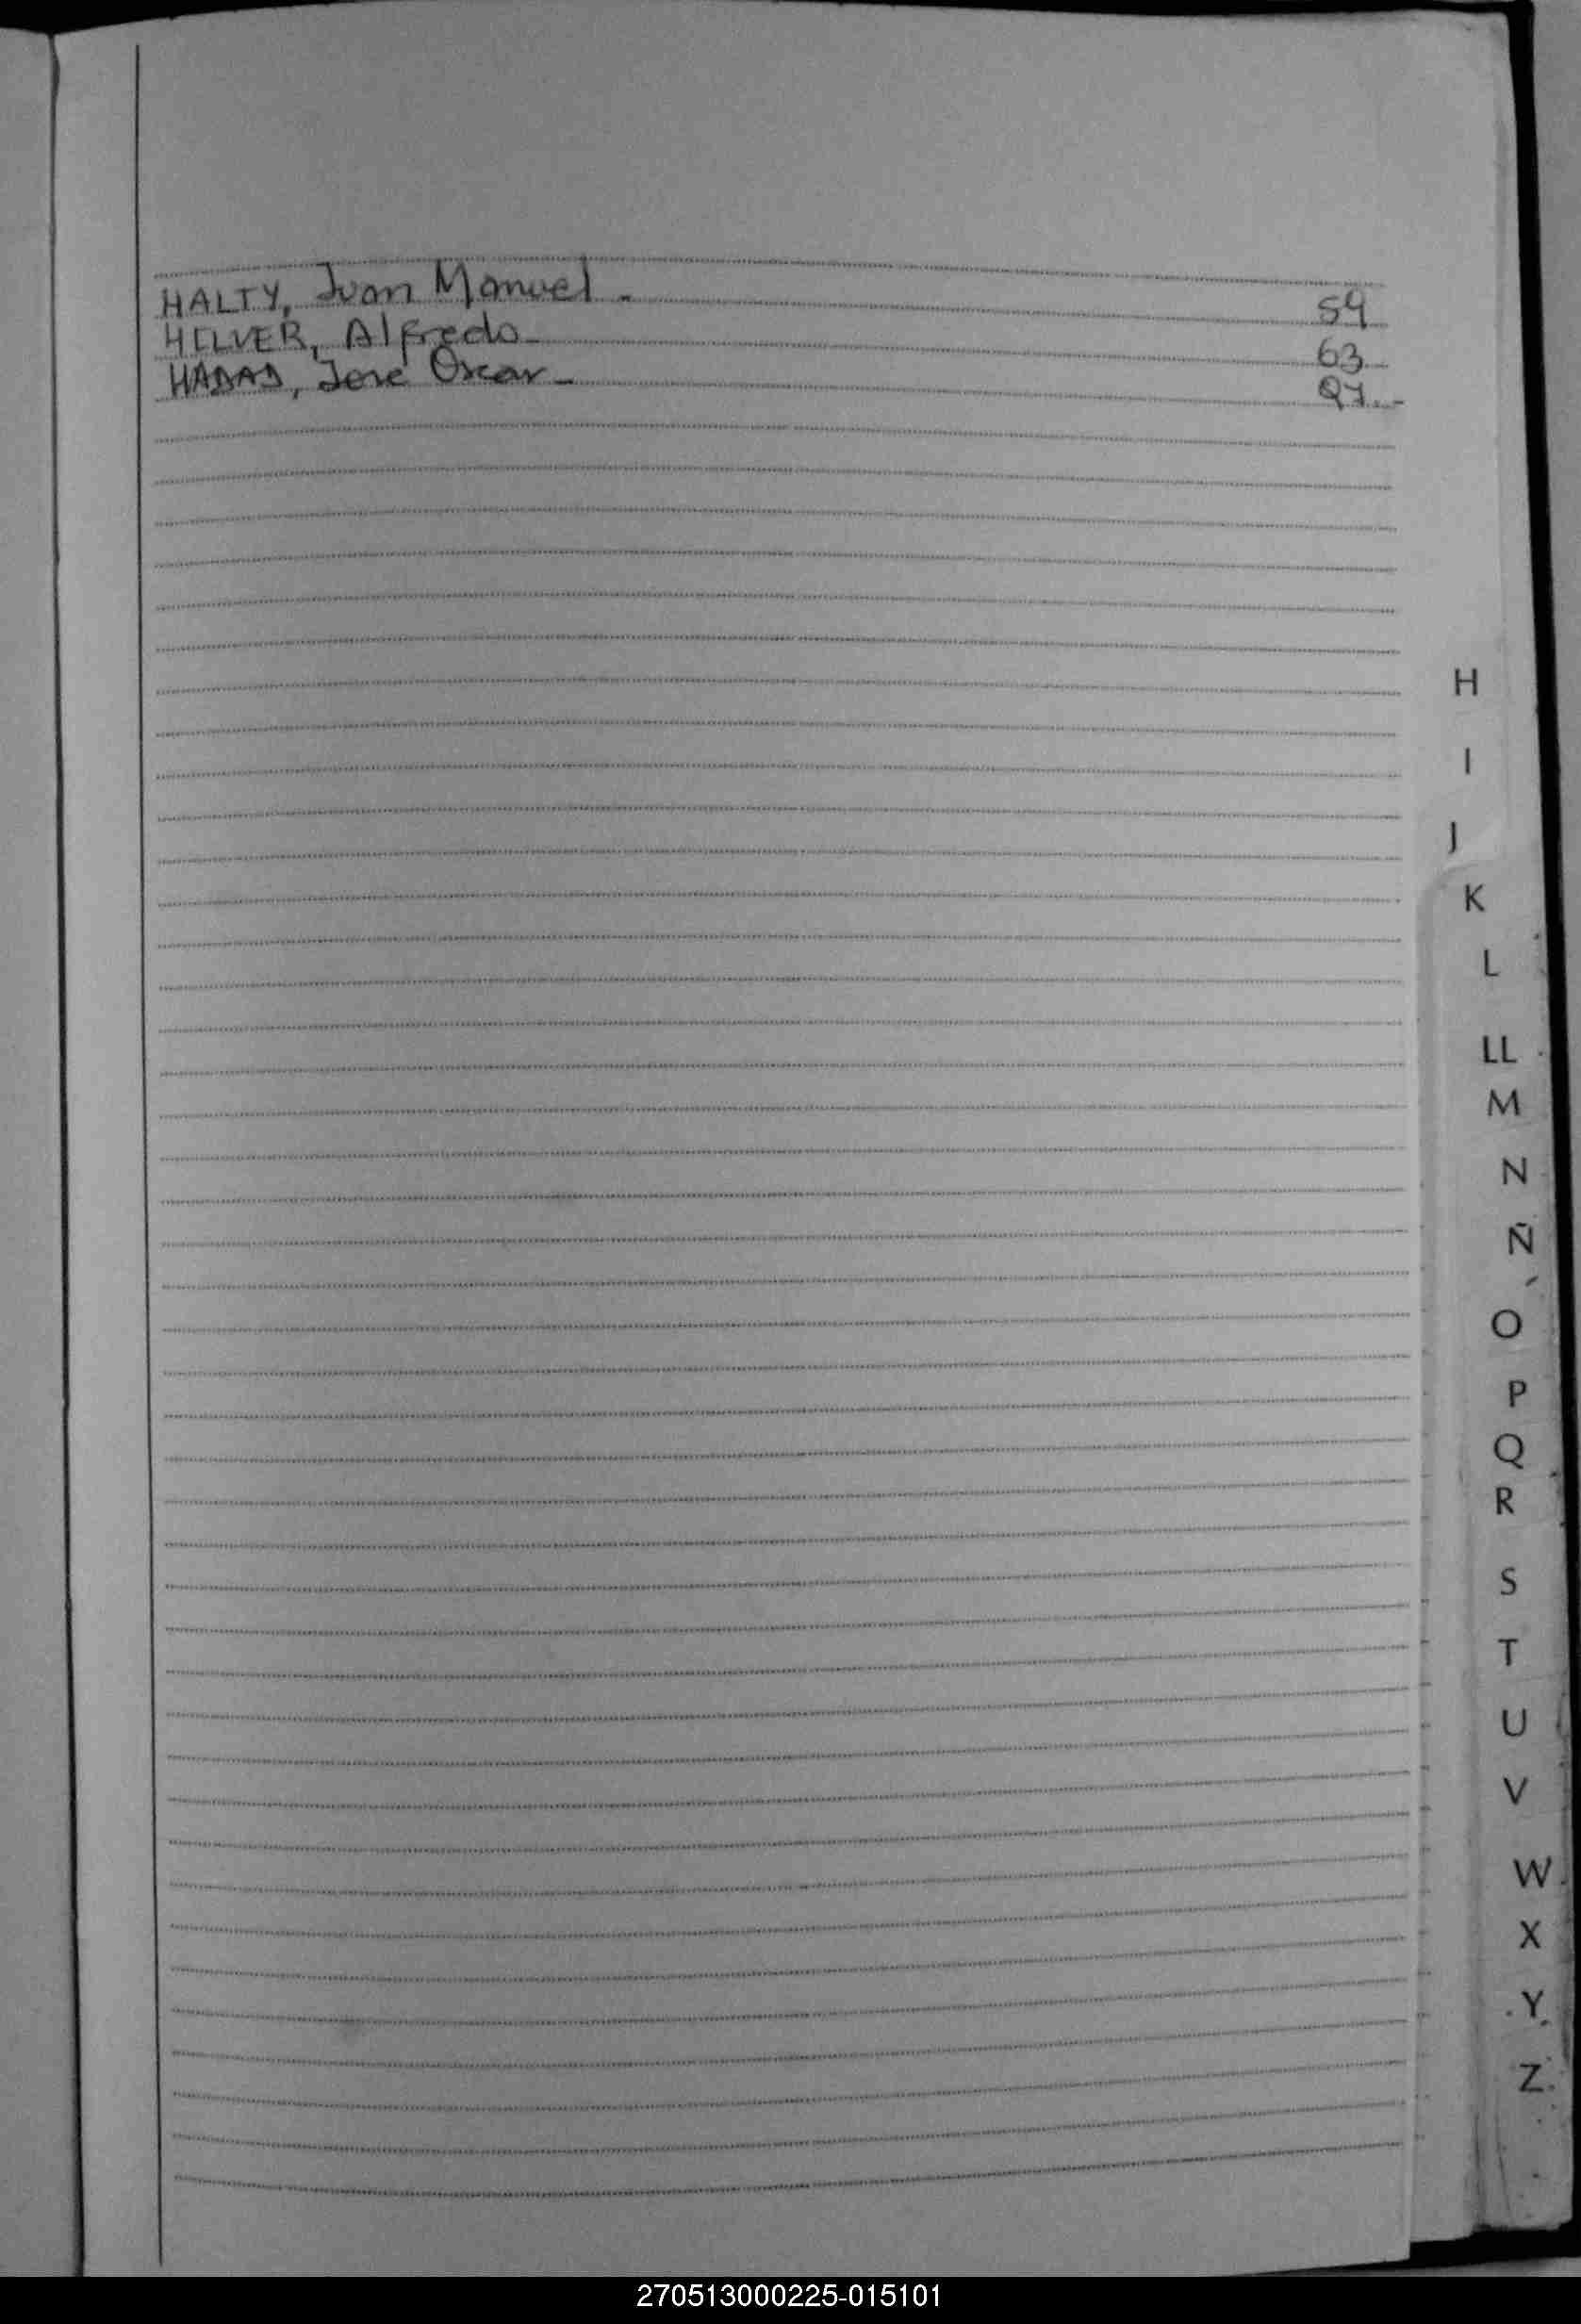 HALTY, Juan Manuel. 59
HILVER, Alfredo 63
HADAD, Jose Oscar 97
H
I
J
K
L
LL
M
N
Ñ
O
P
Q
R
S
T
U
V
W
X
Y
Z
270513000225-015101